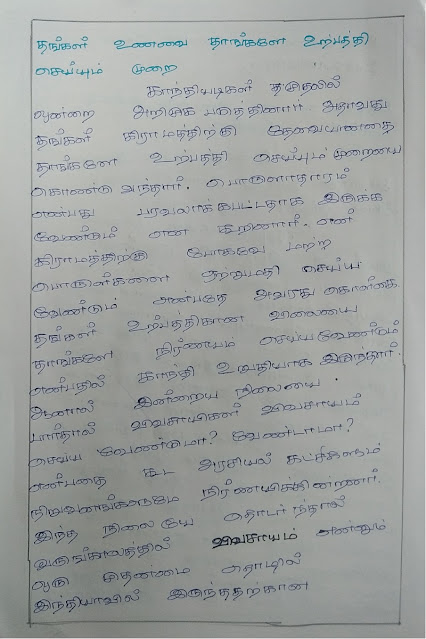 தங்கள் உணவை தாங்களே உற்பத்தி
செய்யும் முறை
காந்தியடிகள் முதலில்
ஒன்றை அறிமுக படுத்தினார். அதாவது
தங்கள் கிராமத்திற்கு தேவையானதை
தாங்களே உற்பத்தி செய்யும் முறையை
கொண்டு வந்தார். பொருளாதாரம்
என்பது பரவலாக்கபட்டதாக இருக்க
வேண்டும் என கூறினார். என்
கிராமத்திற்கு போகவே மற்ற
பொருள்களை ஏற்றுமதி செய்ய
வேண்டும் என்பதே அவரது கொள்கை.
தங்கள் உற்பத்திகான விலையை
தாங்களே நிர்ணயம் செய்யவேண்டும்
என்பதில் காந்தி உறுதியாக இருந்தார்.
ஆனால் இன்றைய நிலையை
பார்தால் விவசாயிகள் விவசாயம்
செய்ய வேண்டுமா? வேண்டாமா?
என்பதை கூட அரசியல் கட்சிகளும்
நிறுவனங்களுமே நிர்ணயிக்கின்றனர்.
இந்த நிலையே தொடர்ந்தால்
வருங்காலத்தில் விவசாயம் என்னும்
ஒரு தொன்மை தொழில்
இந்தியாவில் இருந்ததற்கான